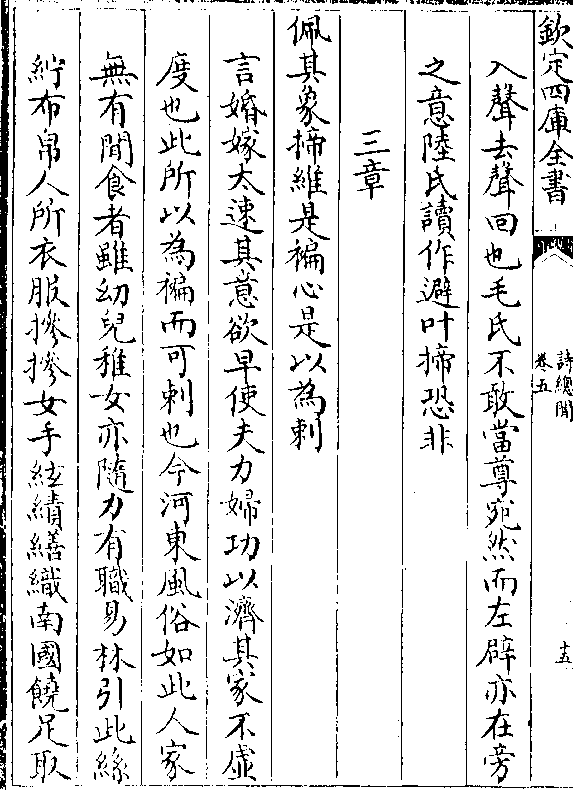 欽定四庫全書
詩總聞
卷五
十五
入聲去聲回也毛氏不敢當尊宛然而左辟亦在旁
之意陸氏讀作避叶揥恐非
三章
佩其象揥維是褊心是以為刺
言婚嫁太速其意欲早使夫力婦功以濟其家不虛
度也此所以為褊而可刺也今河東風俗如此人家
無有閒食者雖幼兒稚女亦隨力有職易林引此絲
紵布帛人所衣服摻摻女手紘績繕織南國饒足取